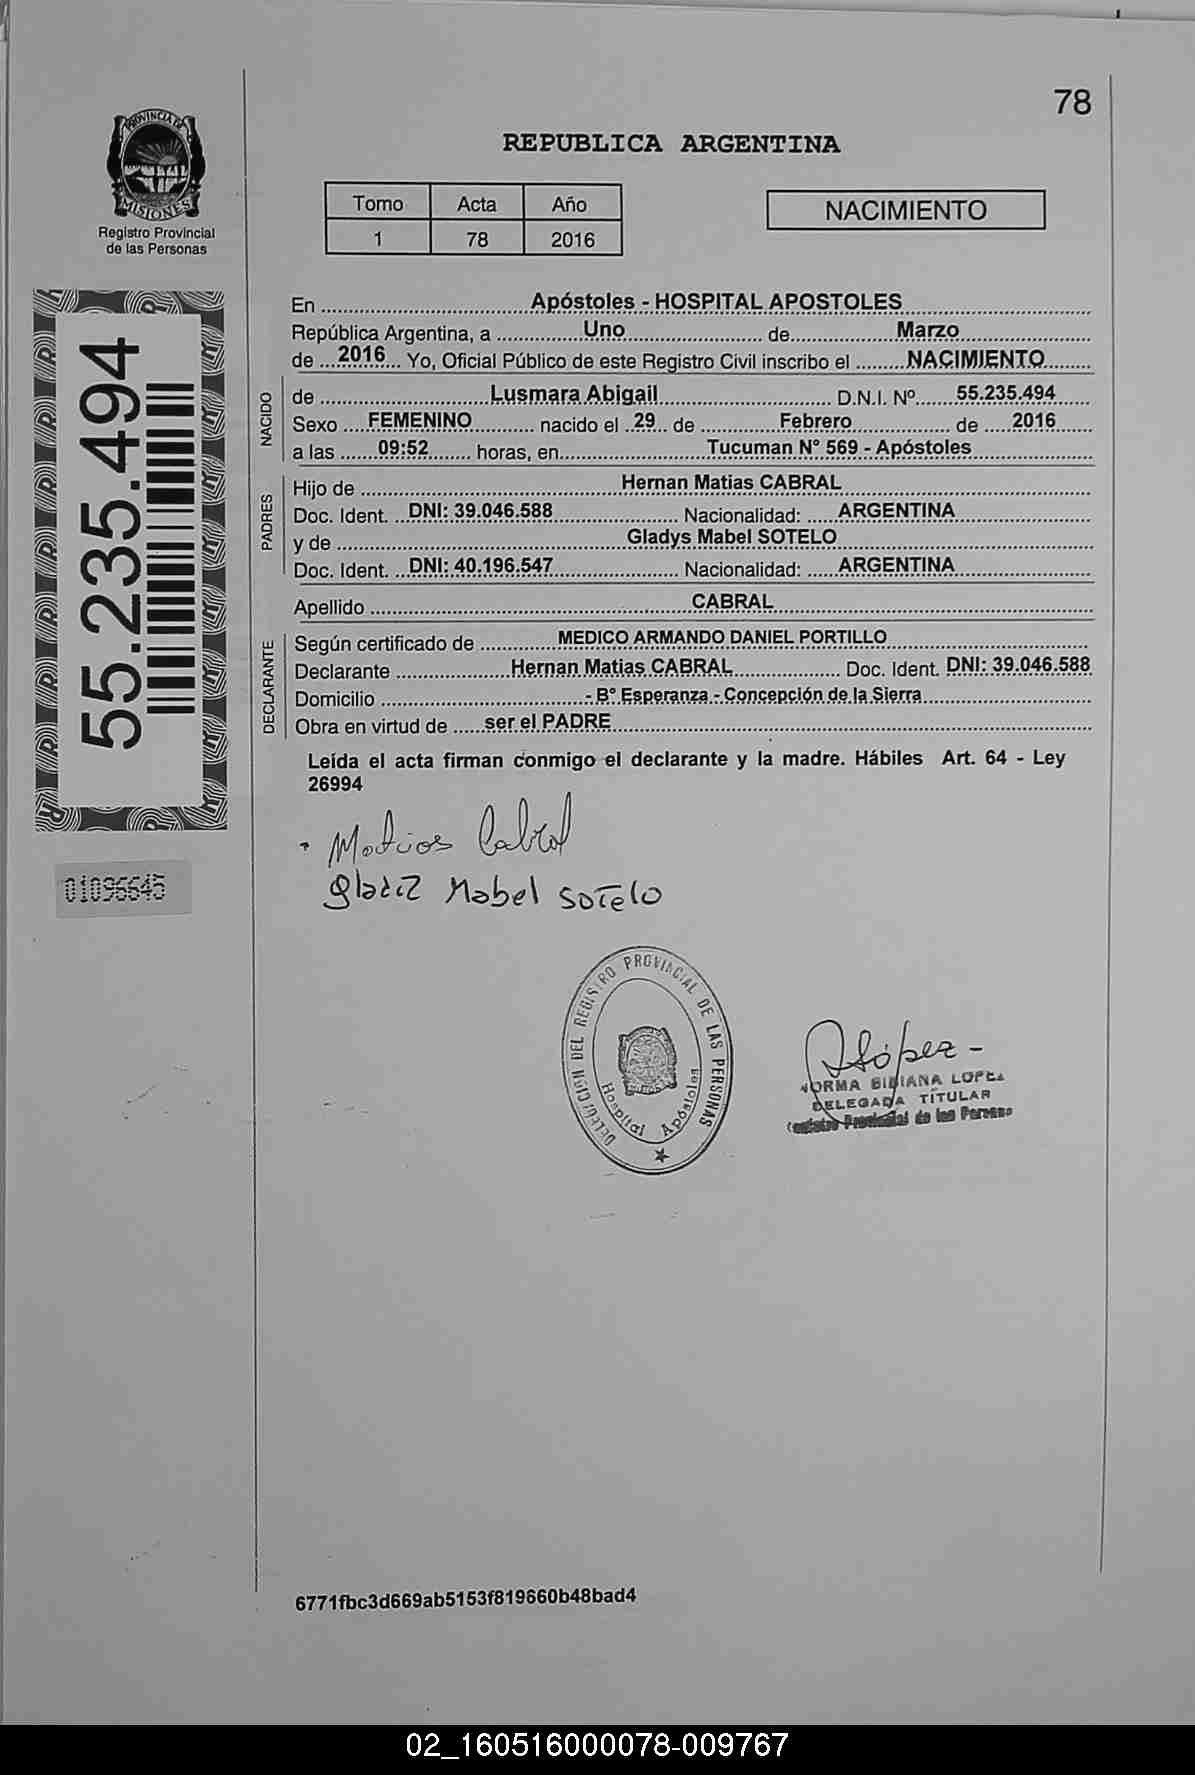 78
PROVINCIA DE
MISIONES
Registro Provincial
de las Personas
REPUBLICA ARGENTINA
Tomo Acta Año
1 78 2016
NACIMIENTO
55.235.494
01096645
En Apóstoles - HOSPITAL APOSTOLES
República Argentina, a Uno de Marzo
de 2016 Yo, Oficial Público de este Registro Civil inscribo el NACIMIENTO
NACIDO
de Lusmara Abigail D.N.I. Nº 55.235.494
Sexo FEMENINO nacido el 29 de Febrero de 2016
a las 09:52 horas, en Tucuman N° 569 - Apóstoles
PADRES
Hijo de Hernan Matias CABRAL
Doc. Ident. DNI: 39.046.588 Nacionalidad: ARGENTINA
y de Gladys Mabel SOTELO
Doc. Ident. DNI: 40.196.547 Nacionalidad: ARGENTINA
Apellido CABRAL
DECLARANTE
Según certificado de MEDICO ARMANDO DANIEL PORTILLO
Declarante Hernan Matias CABRAL Doc. Ident. DNI: 39.046.588
Domicilio - B° Esperanza - Concepción de la Sierra
Obra en virtud de ser el PADRE
Leída el acta firman conmigo el declarante y la madre. Hábiles Art. 64 - Ley
26994
Cabral
Mabel SOTELO
DELEGACION DEL REGISTRO PROVINCIAL DE LAS PERSONAS
Hospital Apóstoles
López
NORMA BIBIANA LOPEZ
DELEGADA TITULAR
Provincial de las Personas
6771fbc3d669ab5153f819660b48bad4
02_160516000078-009767